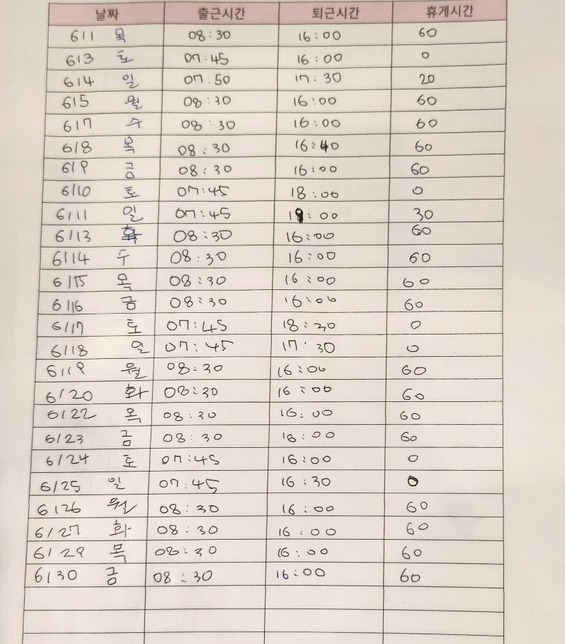 날짜 출근시간 퇴근시간 휴게시간
6/1 목 08:30 16:00 60
6/3 토 07:45 16:00 0
6/4 일 07:50 17:30 20
6/5 월 08:30 16:00 60
6/7 수 08:30 16:00 60
6/8 목 08:30 16:40 60
6/9 금 08:30 16:00 60
6/10 토 07:45 18:00 0
6/11 일 07:45 19:00 30
6/13 화 08:30 16:00 60
6/14 수 08:30 16:00 60
6/15 목 08:30 16:00 60
6/16 금 08:30 16:00 60
6/17 토 07:45 18:20 0
6/18 일 07:45 17:30 0
6/19 월 08:30 16:00 60
6/20 화 08:30 16:00 60
6/22 목 08:30 16:00 60
6/23 금 08:30 16:00 60
6/24 토 07:45 16:00 0
6/25 일 07:45 16:30 0
6/26 월 08:30 16:00 60
6/27 화 08:30 16:00 60
6/29 목 08:30 16:00 60
6/30 금 08:30 16:00 60